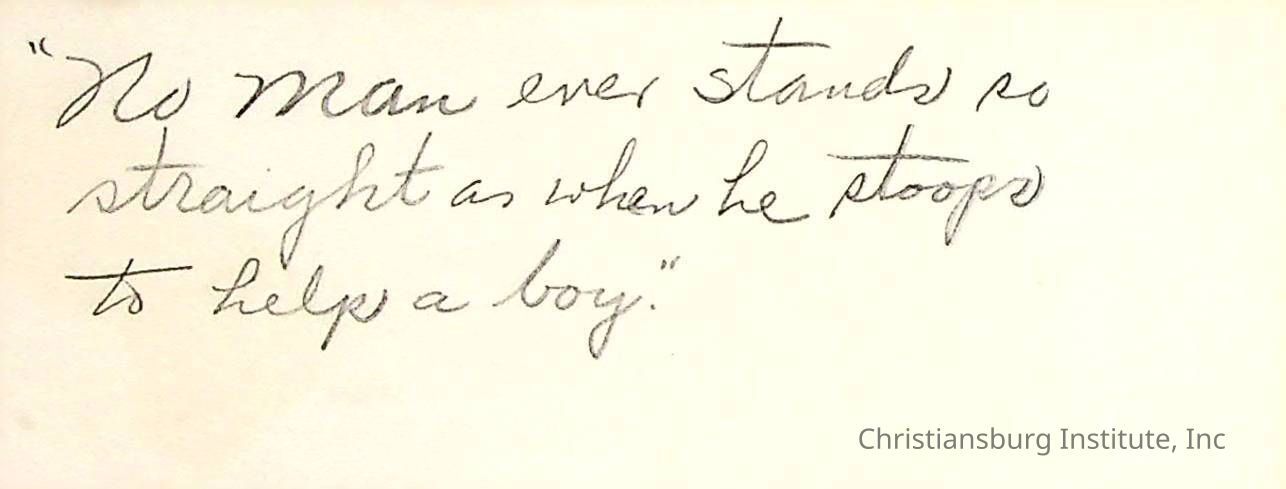 "No man ever stands so
straight as when he stoops
to help a boy."
Christiansburg Institute, Inc